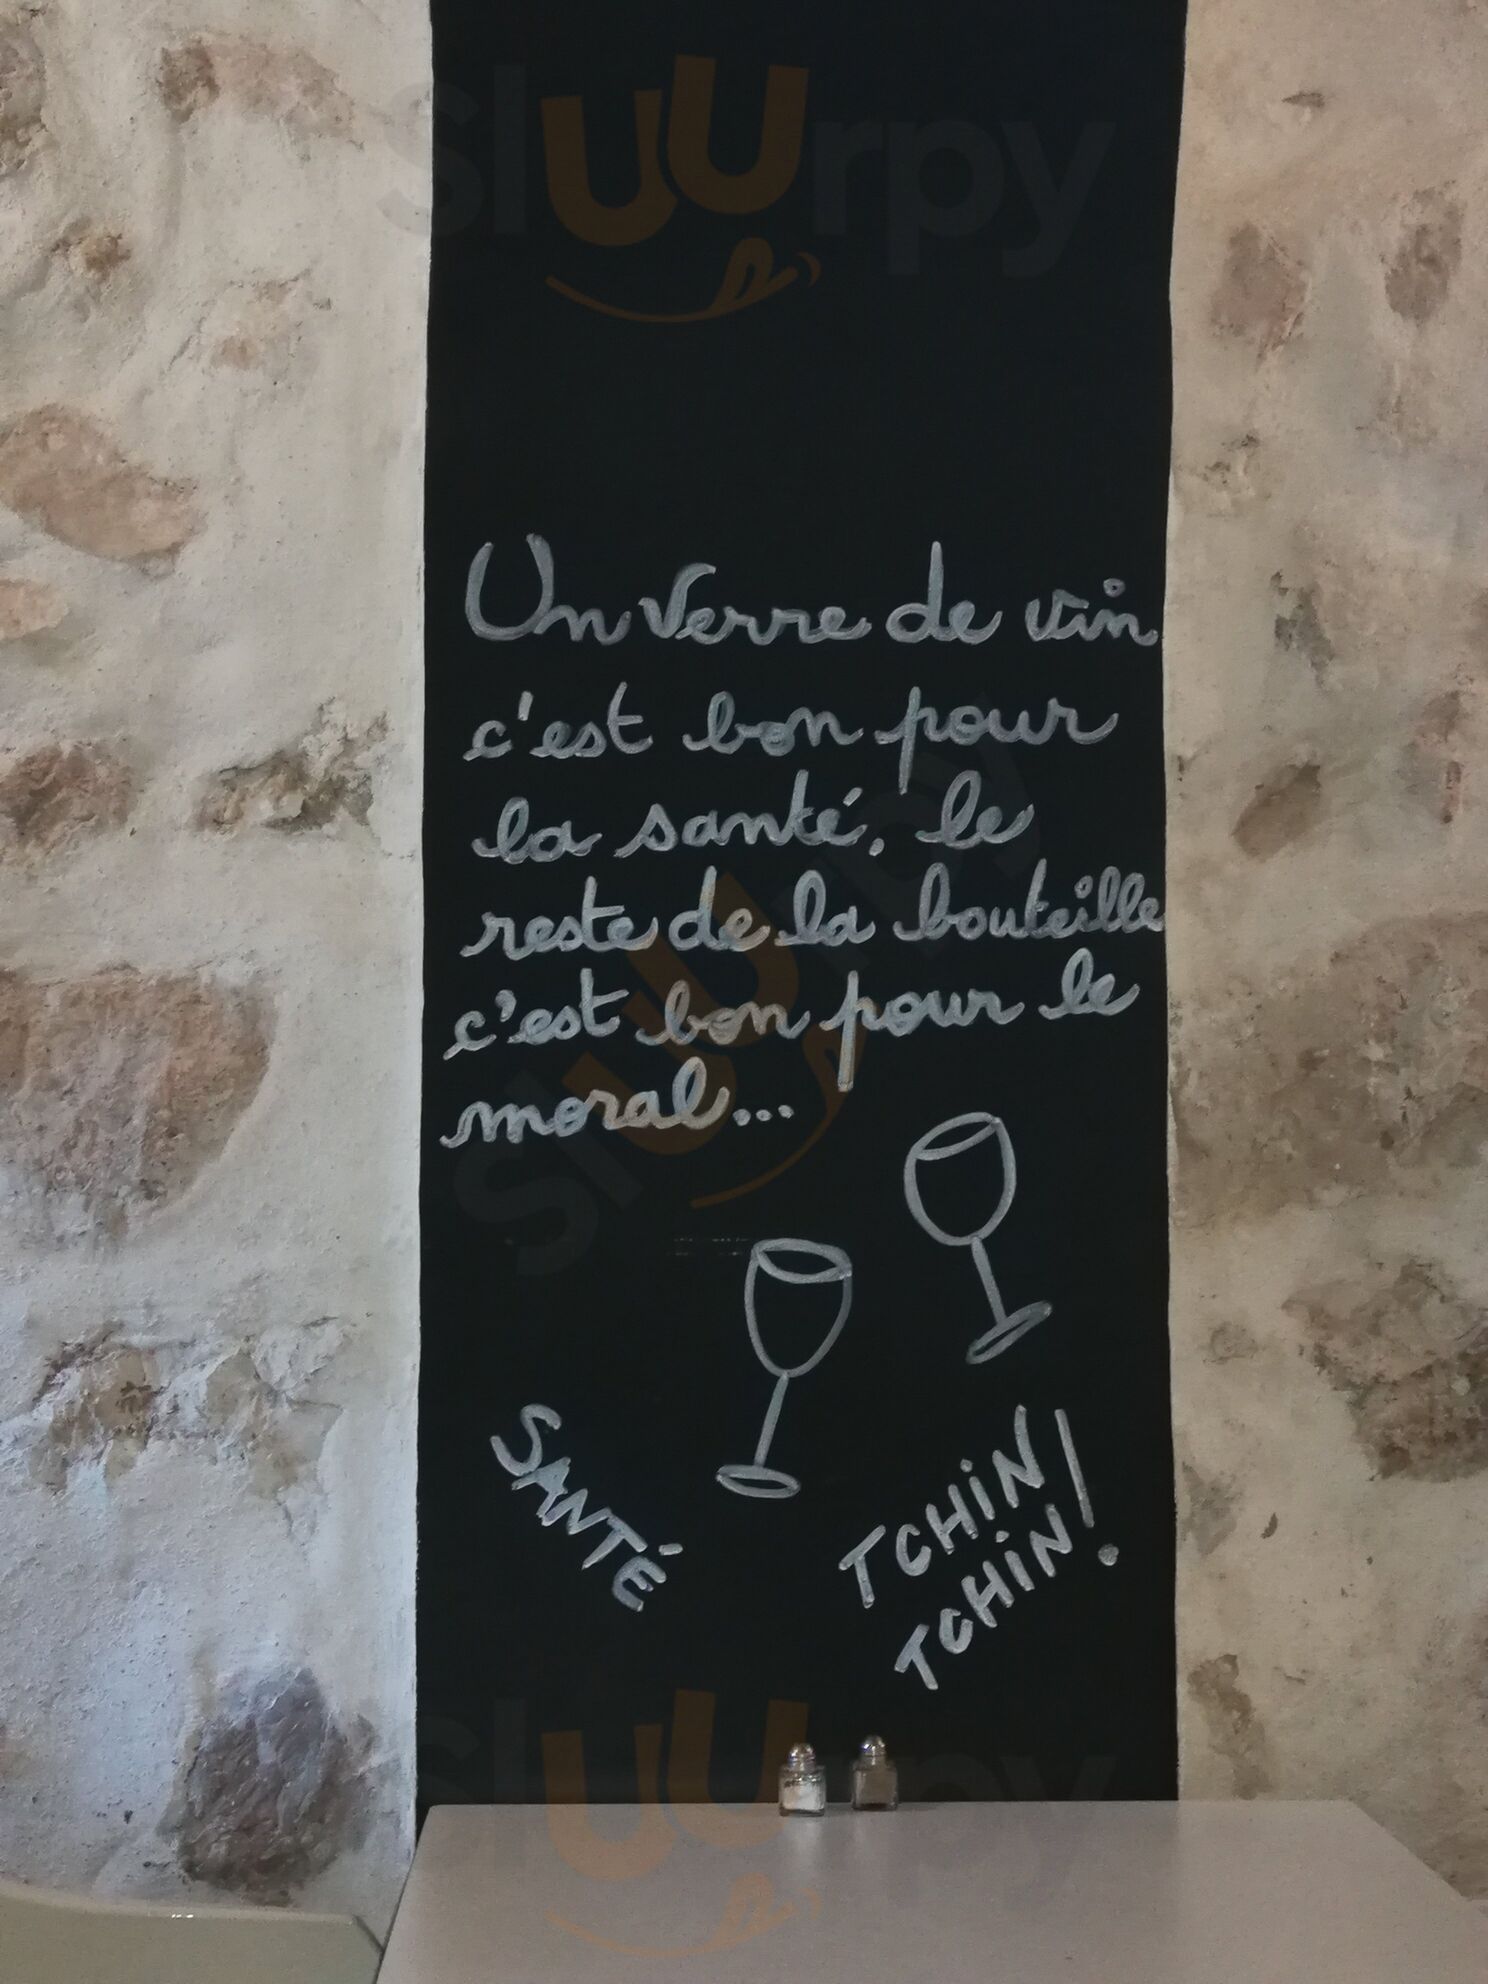 Sluurpy
Un verre de vin
c'est bon pour
la santé. le
reste de la bouteille
c'est bon pour le
moral...
Sluurpy
SANTÉ
TCHIN
TCHIN!
Sluurpy